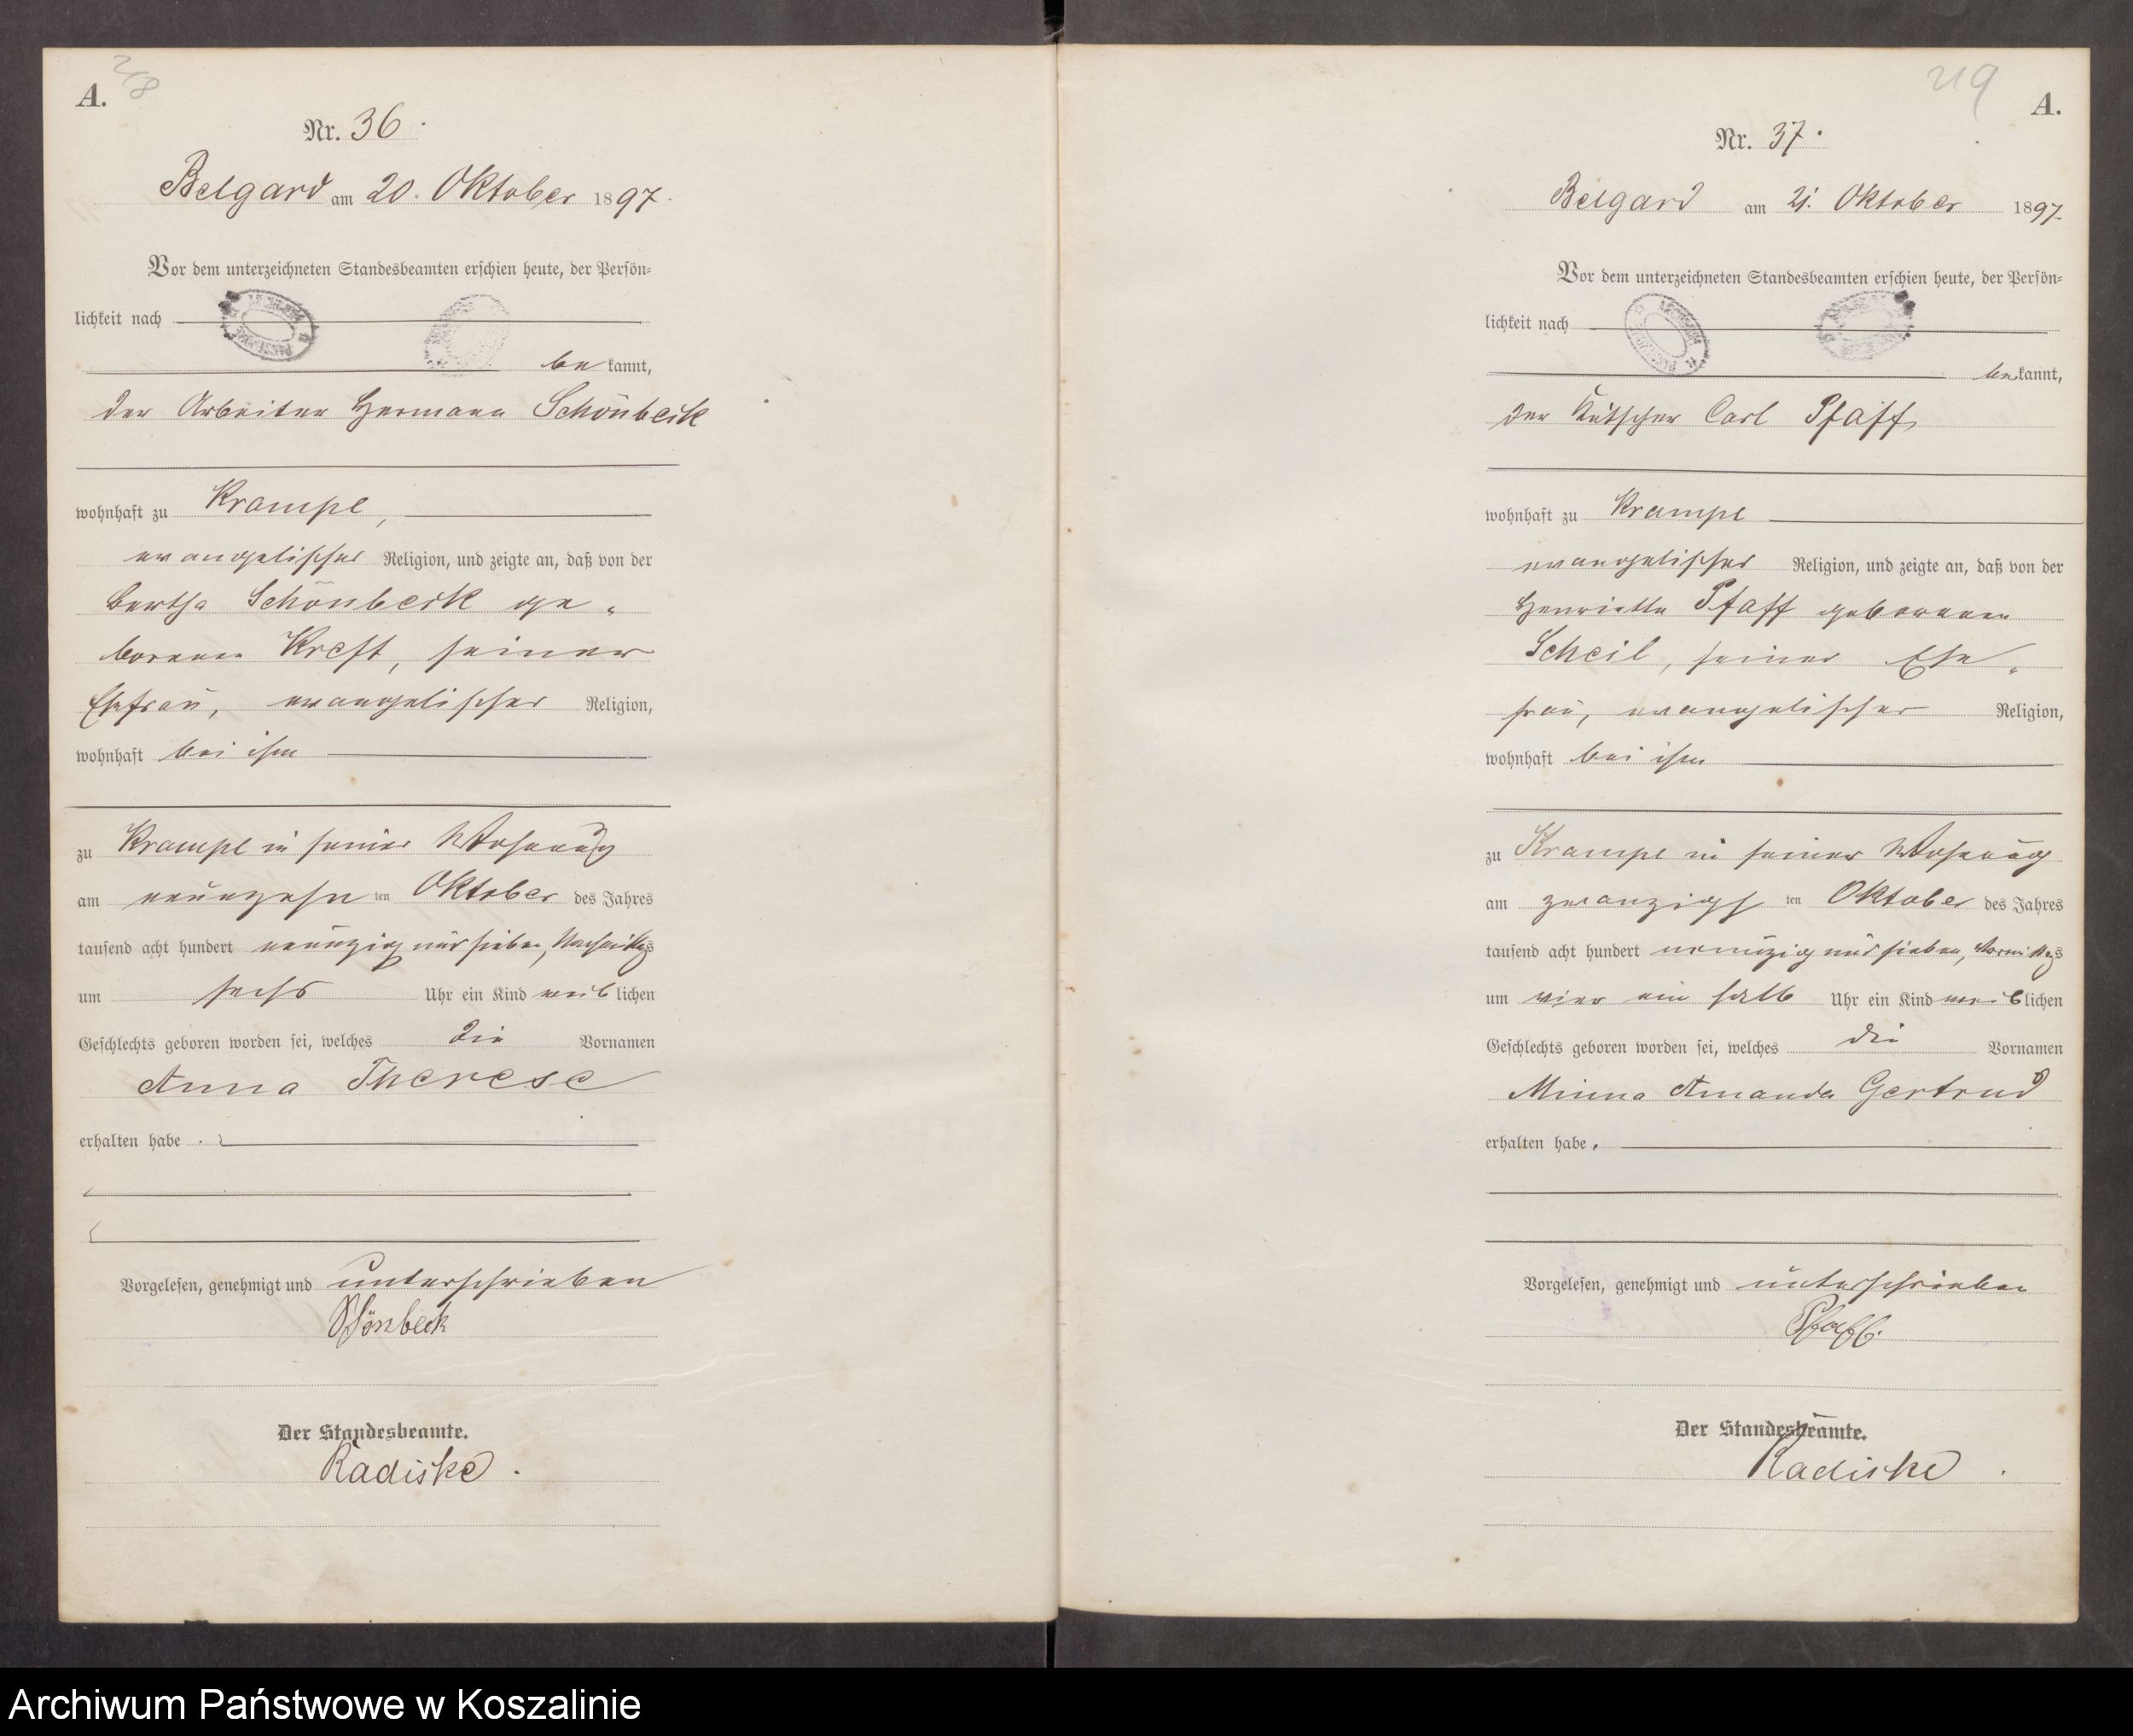 A.
218
Nr. 36.
Belgard am 20. Oktober 1897.
Vor dem unterzeichneten Standesbeamten erschien heute, der Persön=
lichkeit nach
be kannt,
der Arbeiter Hermann Schönbeck
wohnhaft zu Krampe,
evangelischer Religion, und zeigte an, daß von der
Bertha Schönbeck ge=
borenen Kreft, seiner
Ehefrau, evangelischer Religion,
wohnhaft bei ihm
zu Krampe in seiner Wohnung
am neunzehn ten Oktober des Jahres
tausend acht hundert neunzig und sieben, Nachmittags
um sechs Uhr ein Kind weib lichen
Geschlechts geboren worden sei, welches die Vornamen
Anna Therese
erhalten habe.
Vorgelesen, genehmigt und unterschrieben
Schönbeck
Der Standesbeamte.
Radiske.
219
A.
Nr. 37.
Belgard am 21. Oktober 1897.
Vor dem unterzeichneten Standesbeamten erschien heute, der Persön=
lichkeit nach
be kannt,
der Kutscher Carl Pfaff
wohnhaft zu Krampe
evangelischer Religion, und zeigte an, daß von der
Henriette Pfaff geborenen
Scheil, seiner Ehe=
frau, evangelischer Religion,
wohnhaft bei ihm
zu Krampe in seiner Wohnung
am zwanzigs ten Oktober des Jahres
tausend acht hundert neunzig und sieben, Vormittags
um vier ein halb Uhr ein Kind weib lichen
Geschlechts geboren worden sei, welches die Vornamen
Minna Amanda Gertrud
erhalten habe.
Vorgelesen, genehmigt und unterschrieben
Pfaff.
Der Standesbeamte.
Radiske.
Archiwum Państwowe w Koszalinie